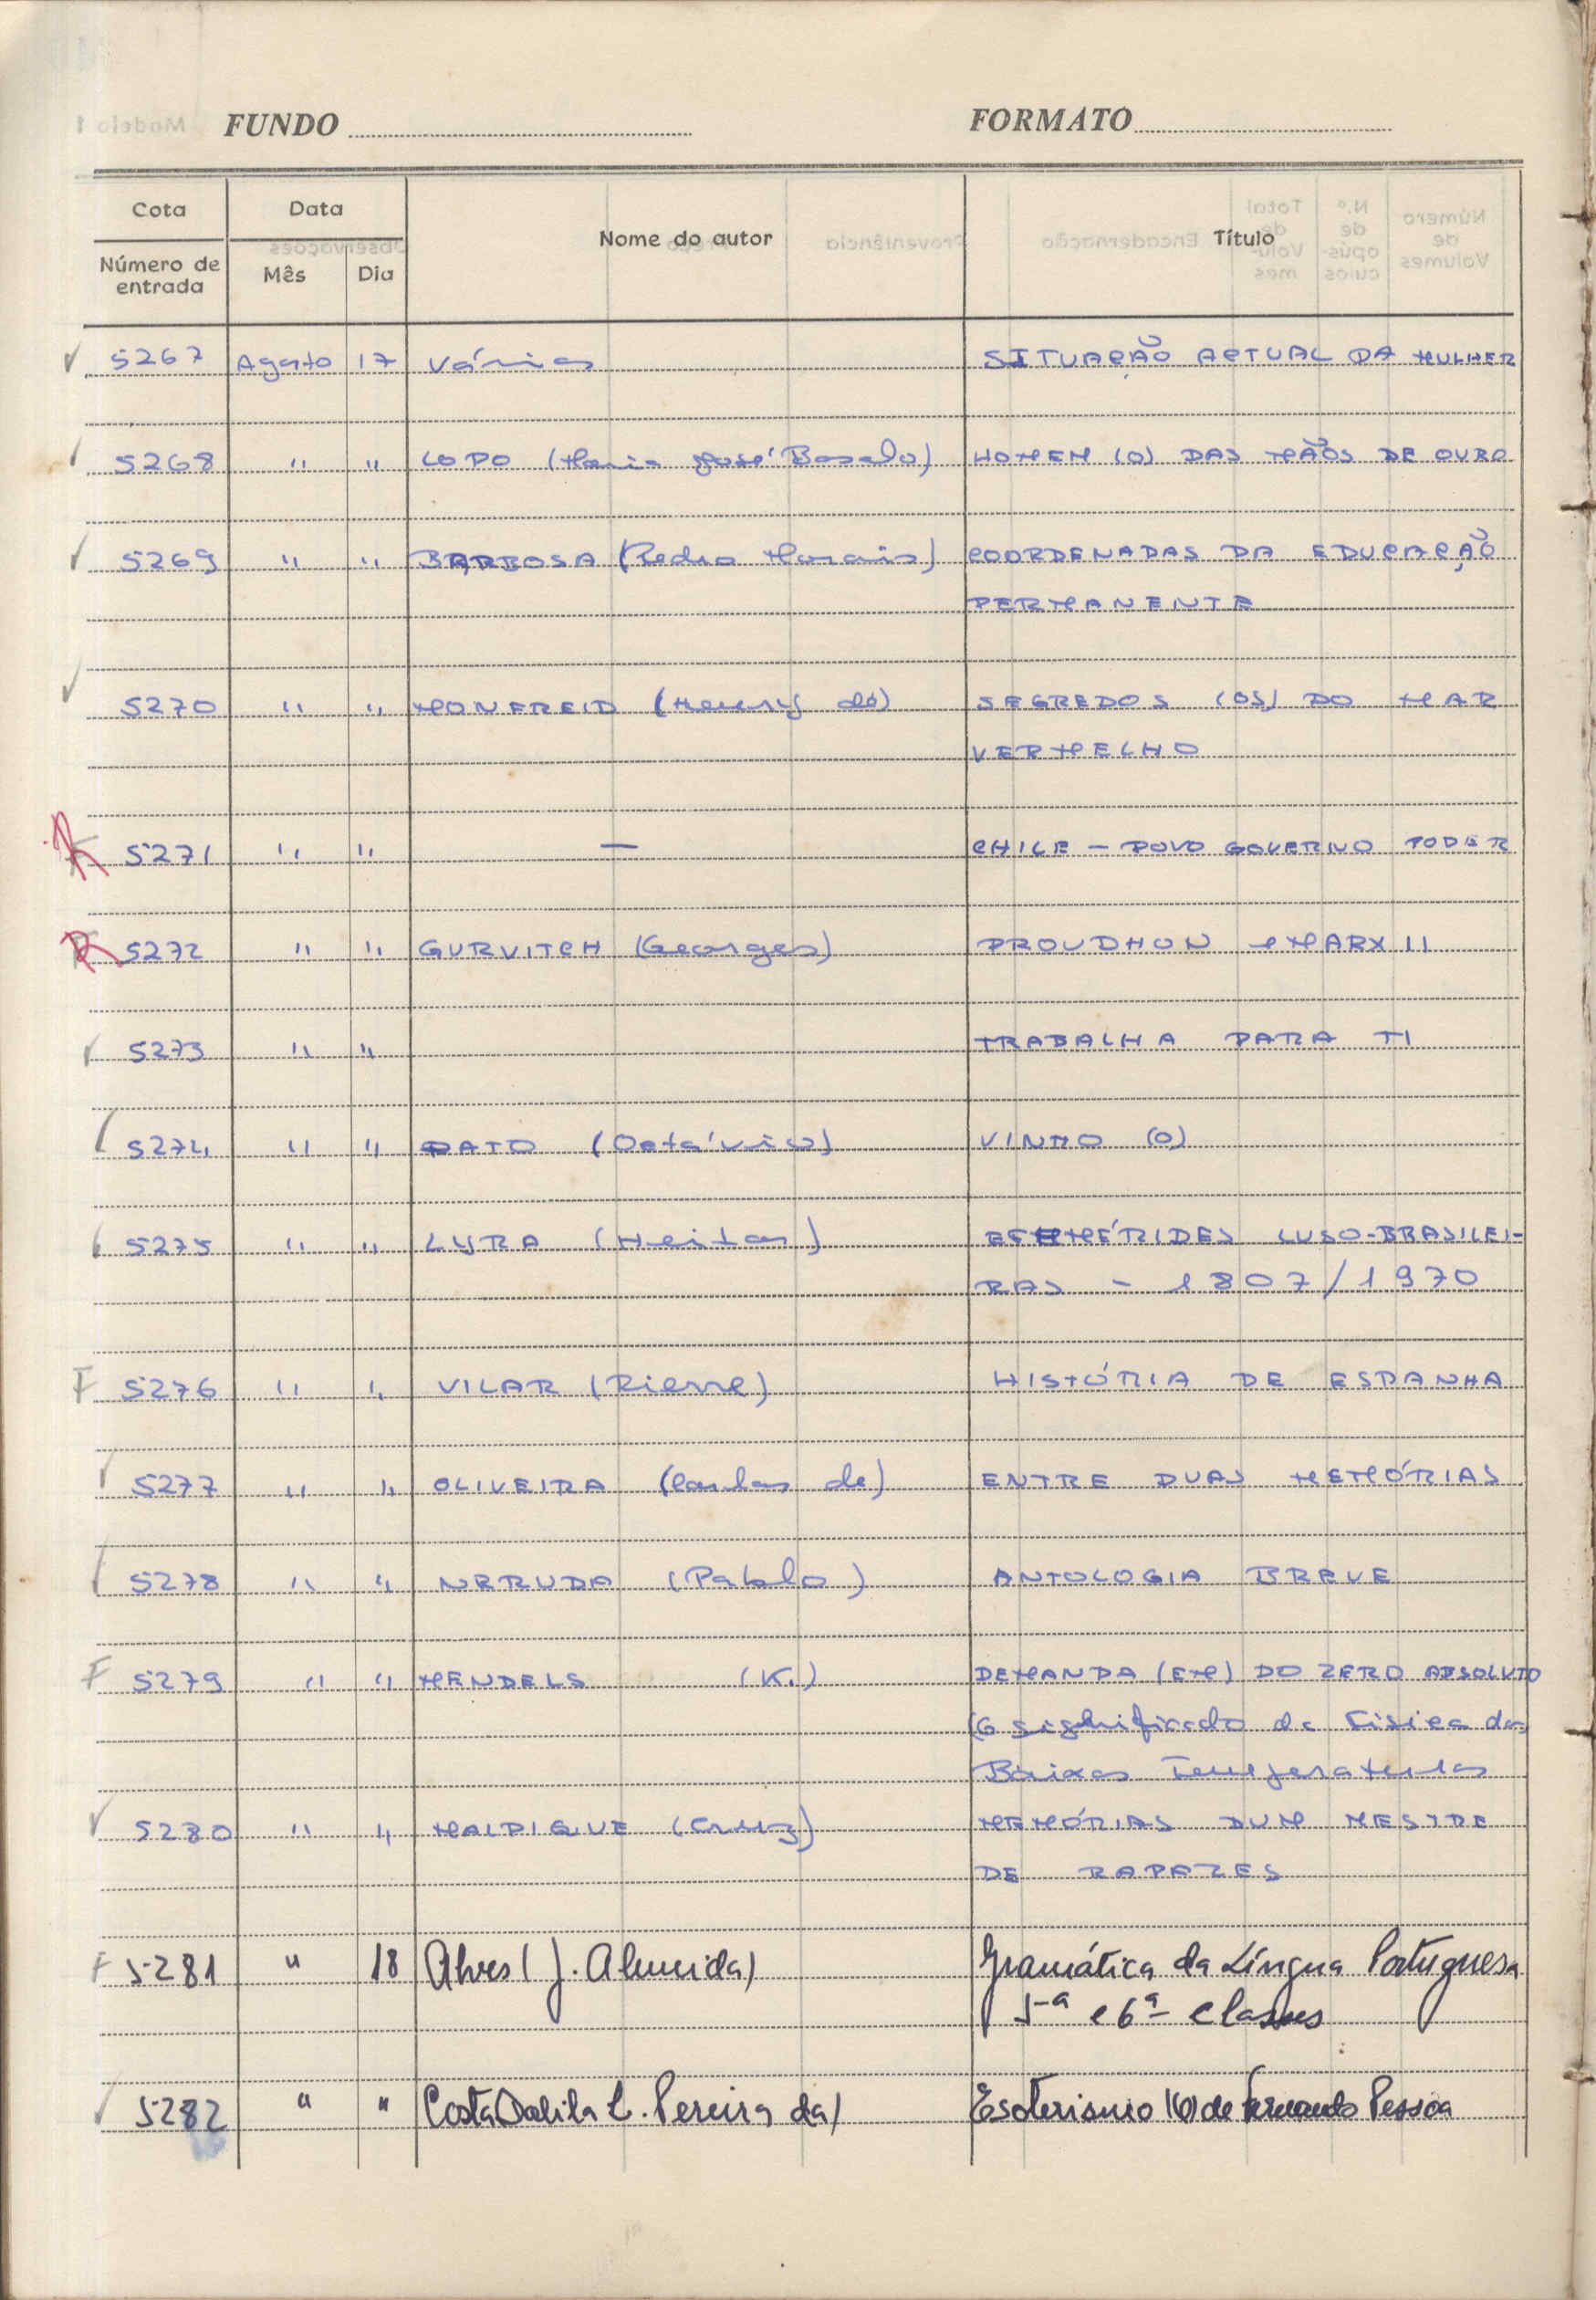 FUNDO FORMATO
Cota Data Nome do autor Título
Número de entrada Mês Dia
✓ 5267 Agosto 17 Vários SITUAÇÃO ACTUAL DA MULHER
✓ 5268 " " LOPO (Maria José Basalo) HOMEM (O) DAS MÃOS DE OURO
✓ 5269 " " BARBOSA (Pedro Morais) COORDENADAS DA EDUCAÇÃO
PERMANENTE
✓ 5270 " " MONFREID (Henry de) SEGREDOS (OS) DO MAR
VERMELHO
5271 " " — CHILE - POVO GOVERNO PODER
5272 " " GURVITCH (Georges) PROUDHON e MARX II
✓ 5273 " " TRABALHA PARA TI
5274 " " PATO (Octávio) VINHO (O)
5275 " " LYRA (Heitor) EFEMÉRIDES LUSO-BRASILEI-
RAS - 1807/1970
F 5276 " " VILAR (Pierre) HISTÓRIA DE ESPANHA
✓ 5277 " " OLIVEIRA (Carlos de) ENTRE DUAS MEMÓRIAS
5278 " " NERUDA (Pablo) ANTOLOGIA BREVE
F 5279 " " MENDELS (K.) DEMANDA (EM) DO ZERO ABSOLUTO
(O significado da Física das
Baixas Temperaturas
✓ 5280 " " MALPIQUE (Cruz) MEMÓRIAS DUM MESTRE
DE RAPAZES
F 5281 " 18 Alves (J. Almeida) Gramática da Língua Portuguesa
5ª e 6ª classes
✓ 5282 " " Costa Dalila L. Pereira da) Esoterismo (O) de Fernando Pessoa